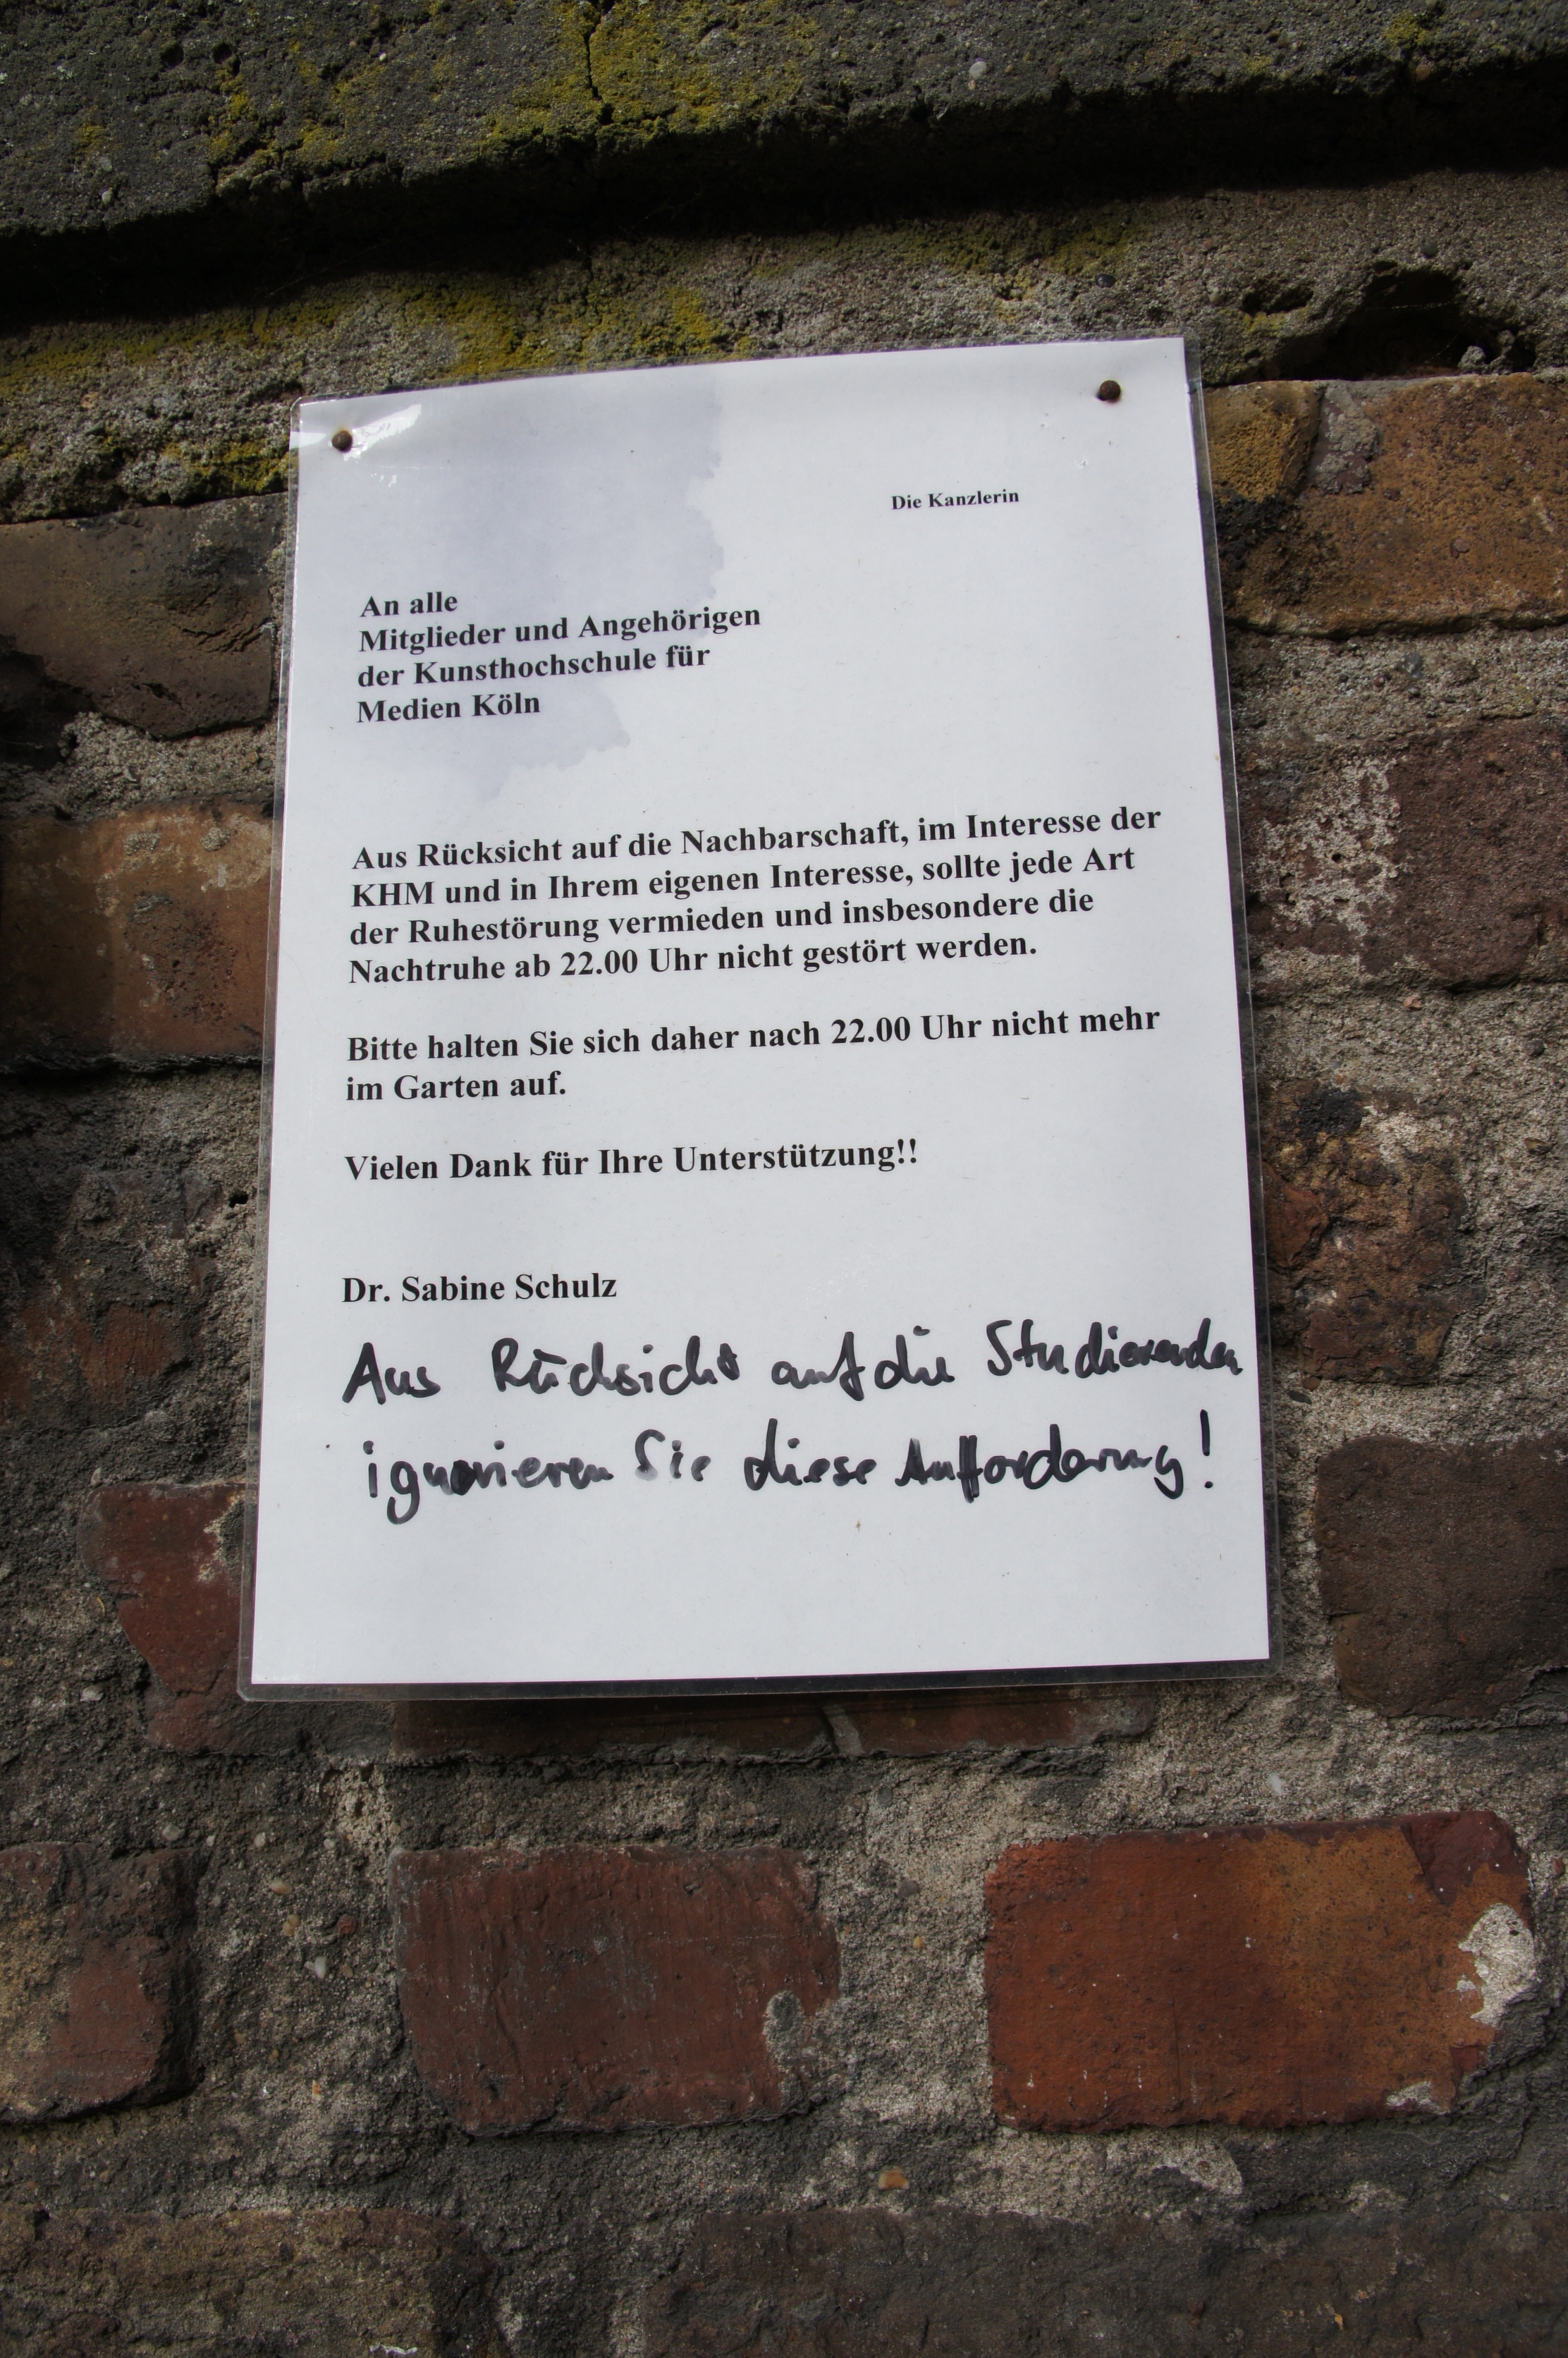 Die Kanzlerin
An alle
Mitglieder und Angehörigen
der Kunsthochschule für
Medien Köln
Aus Rücksicht auf die Nachbarschaft, im Interesse der
KHM und in Ihrem eigenen Interesse, sollte jede Art
der Ruhestörung vermieden und insbesondere die
Nachtruhe ab 22.00 Uhr nicht gestört werden.
Bitte halten Sie sich daher nach 22.00 Uhr nicht mehr
im Garten auf.
Vielen Dank für Ihre Unterstützung!!
Dr. Sabine Schulz
Aus Rücksicht auf die Studierenden
ignorieren Sie diese Aufforderung!